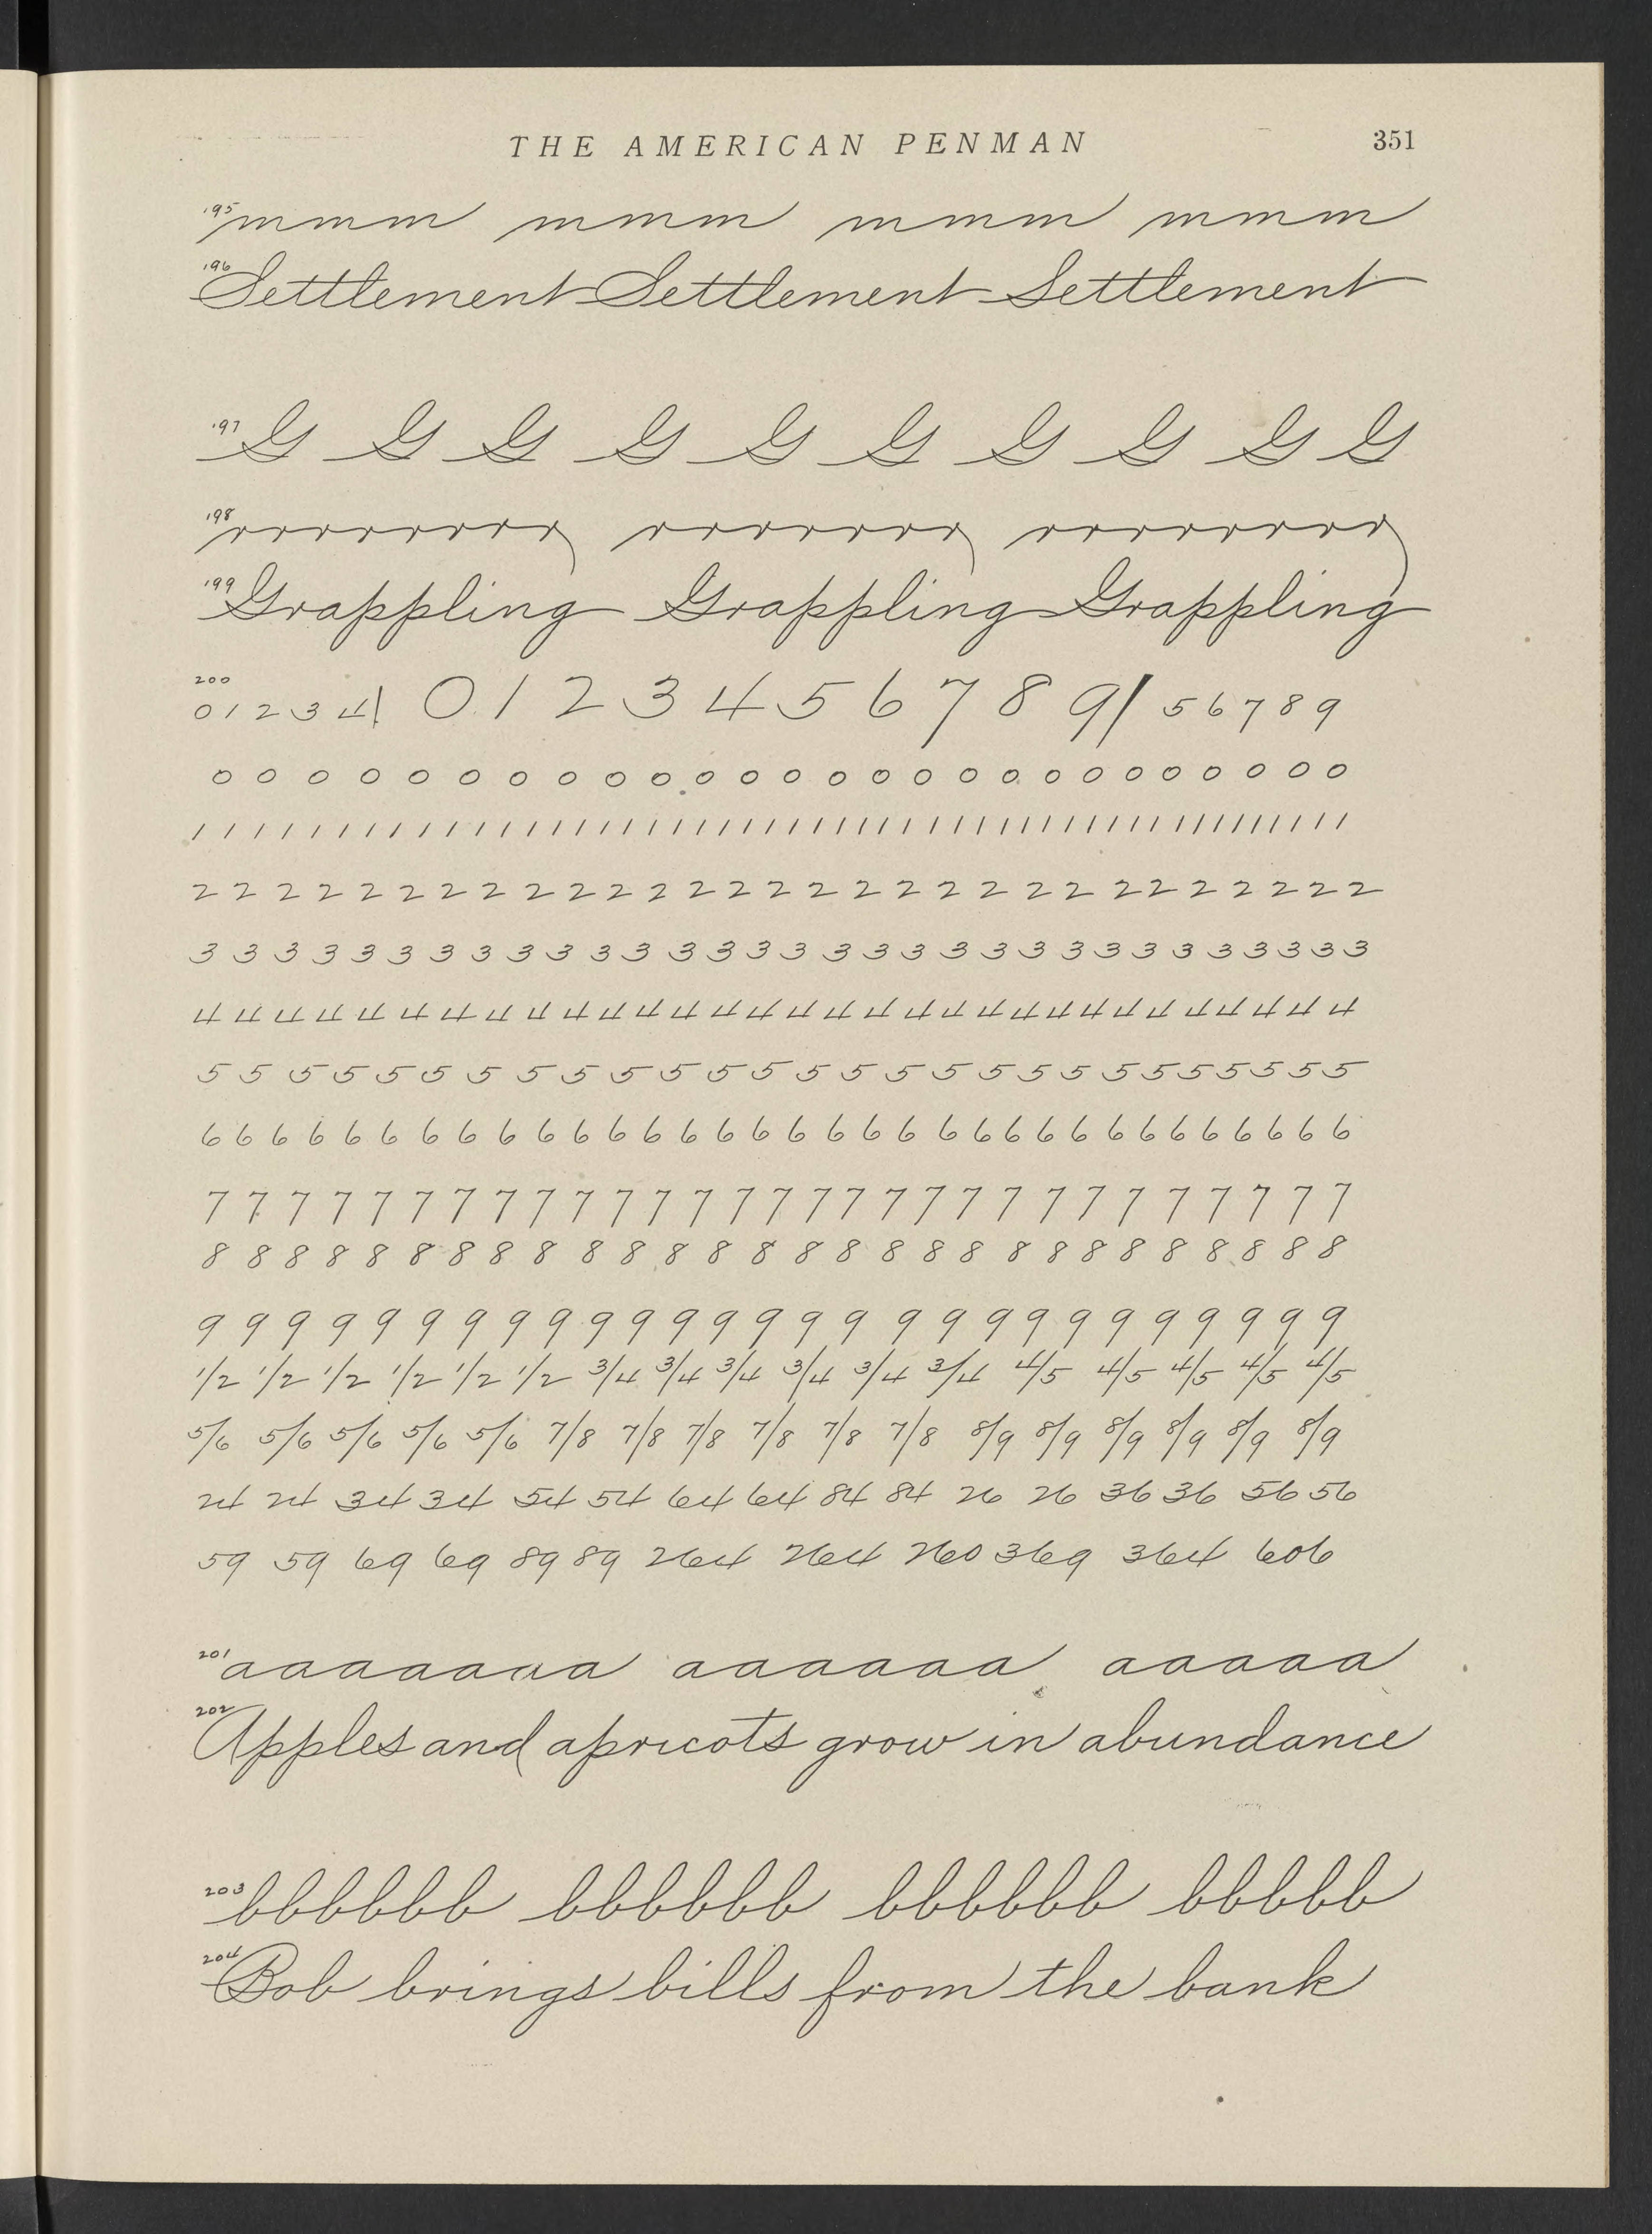 THE AMERICAN PENMAN 351
195 mmm mmm mmm mmm
196 Settlement Settlement Settlement
197 G G G G G G G G G G
198 rrrrrrrrr rrrrrrrr rrrrrrrrr
199 Grappling Grappling Grappling
200
0 1 2 3 4 | 0 1 2 3 4 5 6 7 8 9 / 5 6 7 8 9
0 0 0 0 0 0 0 0 0 0 0 0 0 0 0 0 0 0 0 0 0 0 0 0 0 0
1 1 1 1 1 1 1 1 1 1 1 1 1 1 1 1 1 1 1 1 1 1 1 1 1 1 1 1 1 1 1 1 1 1 1 1 1 1 1 1 1 1 1 1 1 1 1 1 1
2 2 2 2 2 2 2 2 2 2 2 2 2 2 2 2 2 2 2 2 2 2 2 2 2 2 2 2 2
3 3 3 3 3 3 3 3 3 3 3 3 3 3 3 3 3 3 3 3 3 3 3 3 3 3 3 3 3 3 3
4 4 4 4 4 4 4 4 4 4 4 4 4 4 4 4 4 4 4 4 4 4 4 4 4 4 4 4 4 4 4
5 5 5 5 5 5 5 5 5 5 5 5 5 5 5 5 5 5 5 5 5 5 5 5 5 5 5
6 6 6 6 6 6 6 6 6 6 6 6 6 6 6 6 6 6 6 6 6 6 6 6 6 6 6 6 6 6 6 6 6
7 7 7 7 7 7 7 7 7 7 7 7 7 7 7 7 7 7 7 7 7 7 7 7 7 7 7 7 7
8 8 8 8 8 8 8 8 8 8 8 8 8 8 8 8 8 8 8 8 8 8 8 8 8 8 8 8
9 9 9 9 9 9 9 9 9 9 9 9 9 9 9 9 9 9 9 9 9 9 9 9 9 9 9
1/2 1/2 1/2 1/2 1/2 1/2 3/4 3/4 3/4 3/4 3/4 3/4 4/5 4/5 4/5 4/5 4/5
5/6 5/6 5/6 5/6 5/6 7/8 7/8 7/8 7/8 7/8 7/8 8/9 8/9 8/9 8/9 8/9 8/9
24 24 34 34 54 54 64 64 84 84 26 26 36 36 56 56
59 59 69 69 89 89 264 264 260 369 364 606
201 aaaaaaaaa aaaaaaa aaaaa
202 Apples and apricots grow in abundance
203 bbbbbb bbbbbb bbbbbb bbbbb
204 Bob brings bills from the bank